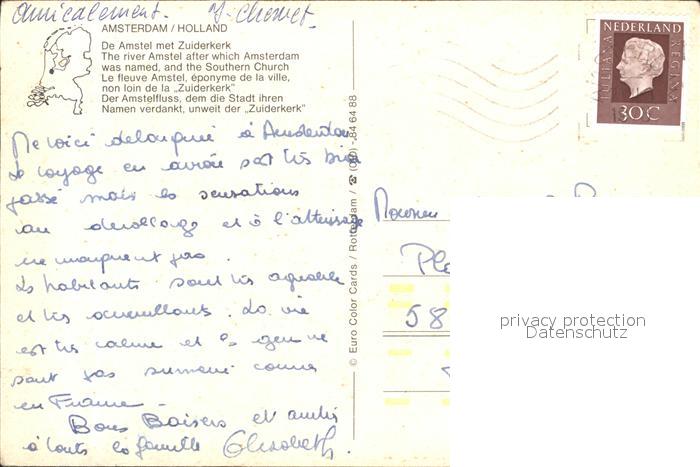 Amicalement.
AMSTERDAM / HOLLAND
De Amstel met Zuiderkerk
The river Amstel after which Amsterdam
was named, and the Southern Church
Le fleuve Amstel, éponyme de la ville,
non loin de la „Zuiderkerk"
Der Amstelfluss, dem die Stadt ihren
Namen verdankt, unweit der „Zuiderkerk"
Me voici à Amsterdam
Le voyage en avion s'est très bien
passé mais les sensations
au décollage et à l'atterrissage
ne manquent pas.
Les habitants sont très agréables
et très accueillants. La vie
est très calme et les gens ne
sont pas comme
en France -
Bons Baisers et amitiés
à toute la famille Elisabeth.
© Euro Color Cards / Rotterdam / ☎ (010) - 84 64 88
NEDERLAND
JULIANA REGINA
30 C
Monsieur
Pla
58
privacy protection
Datenschutz